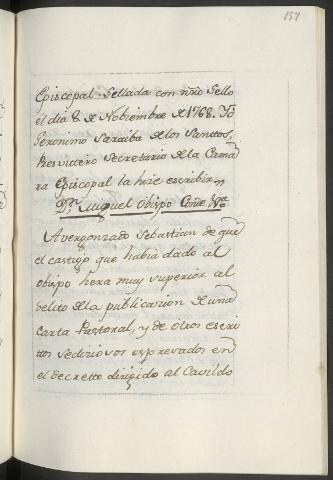 157
Episcopal. Sellada con nr̃o Sello
el dia 8 de Nobiembre de 1768. Yo
Geronimo Saraiba de los Santtos,
Presvitero Secretario de la Cama
ra Episcopal la hize escribir,,
Dn. Miguel Obispo Conde
Avergonzado Sebastian de que
el castigo que habia dado al
obispo hera muy superior al
delito de la publicacion de una
Carta Pastoral, y de otros escri
ttos sediciosos expresados en
el decretto dirigido al Cavildo